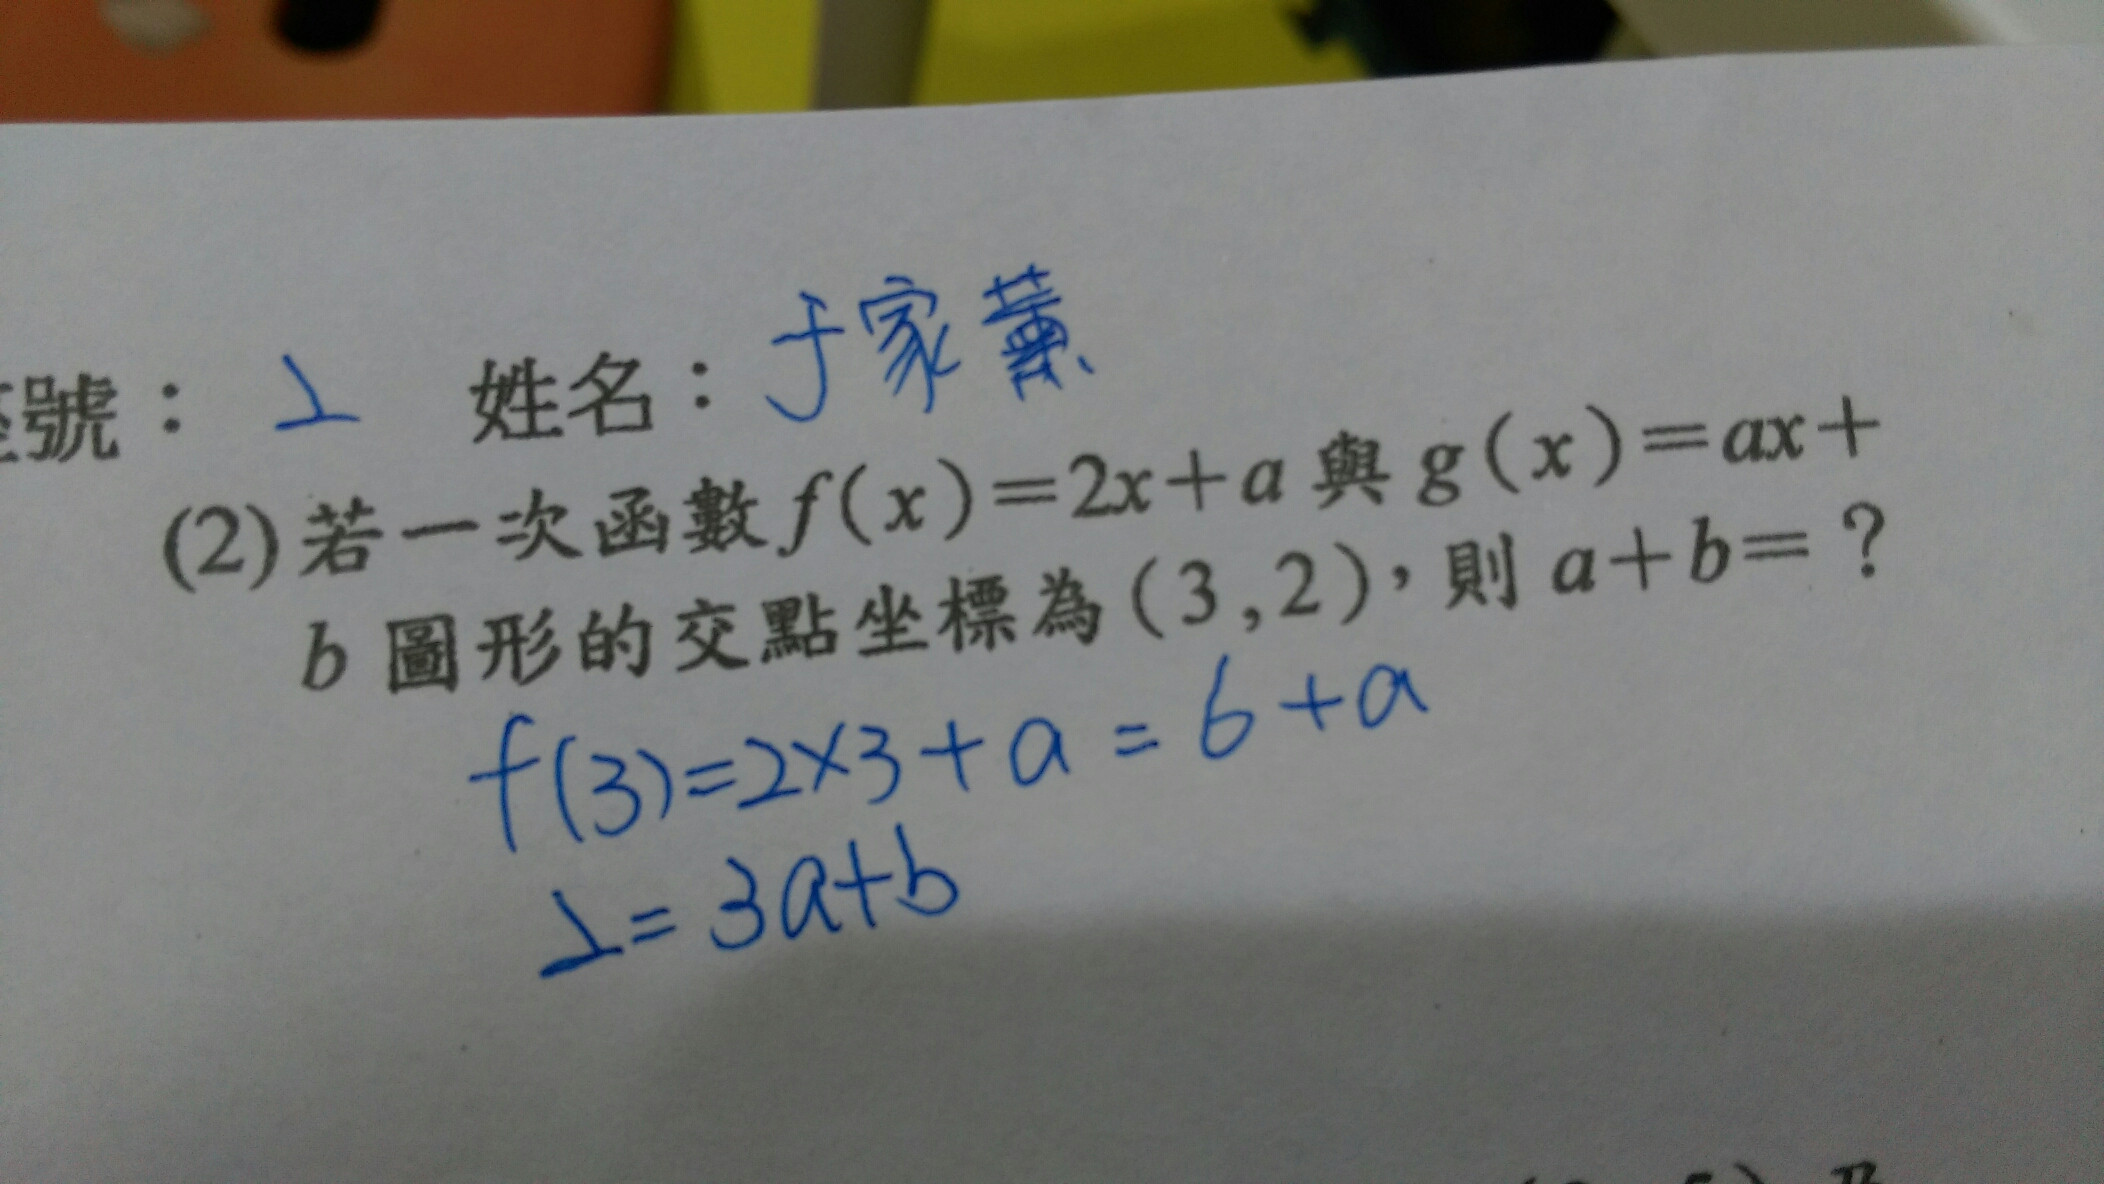 號：2 姓名：于家薰
(2) 若一次函數 f(x)=2x+a 與 g(x)=ax+
b 圖形的交點坐標為(3,2)，則 a+b=？
f(3)=2×3+a=6+a
2=3a+b